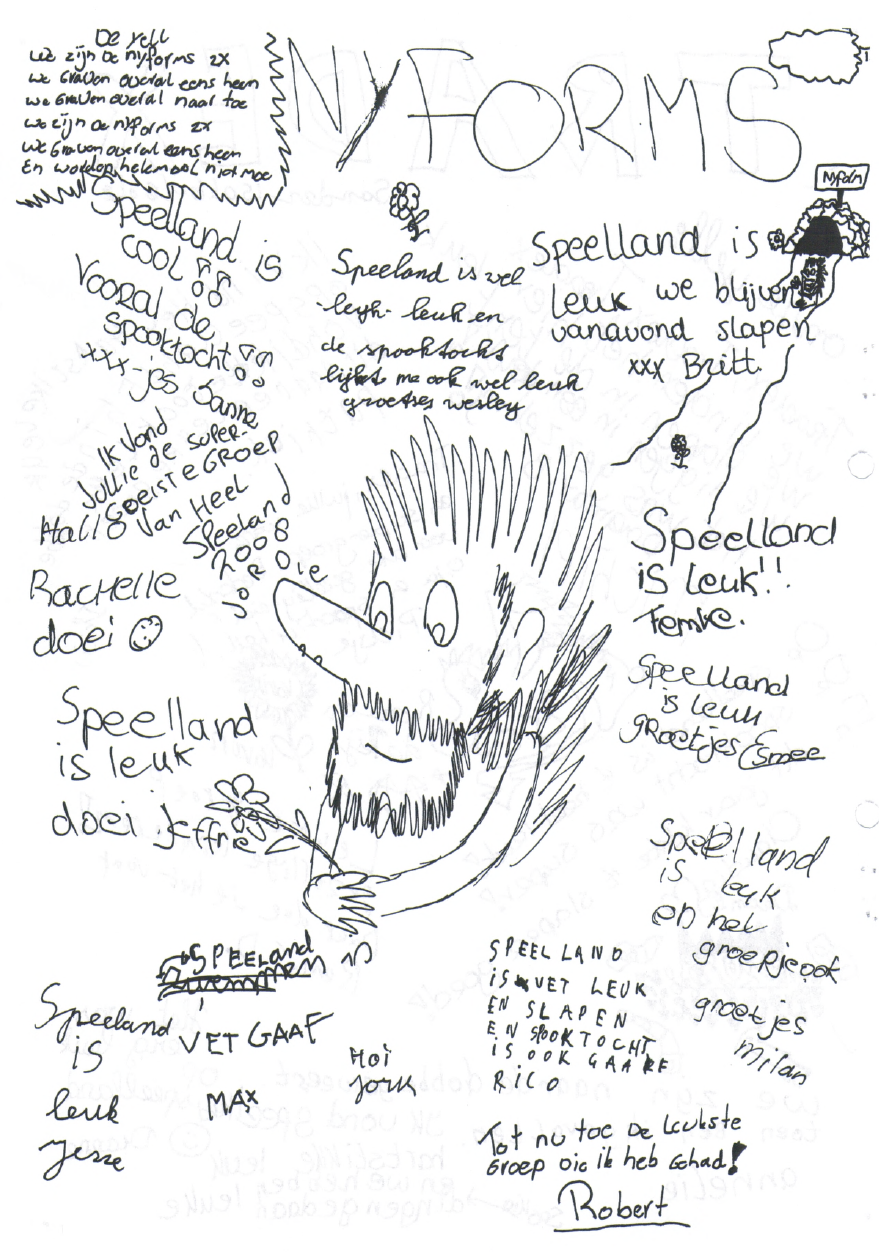 De yell
we zijn De nyforms 2x
we Graven overal eens heen
we Graven overal naar toe
we zijn De nyforms 2x
we Graven overal eens heen
En worden helemaal niet moe
NYFORMS
Nyform
Speelland is
cool!!
Vooral de
spooktocht!!
xxx-jes Sanne
Speeland is wel
leyk- leuk en
de spooktocht
lijkt me ook wel leuk
groetjes wesley
Speelland is
leuk we blijven
vanavond slapen
xxx Britt
IK Vond
Jullie de super-
GOEISTE GROEP
Van Heel
Speeland
2008
JORDIE
Hallo
Rachelle
doei
Speelland
is leuk!!
Femke.
Speelland
is leuk
groetjes Esmee
Speelland
is leuk
doei jeffrey
Speelland
is
leyk
en het
groepje ook
groetjes
milan
SPEELand is
VET GAAF
MAX
Speeland
is
leuk
Jesse
Hoi
Jork
SPEELLAND
is VET LEUK
EN SLAPEN
EN SPOOKTOCHT
IS OOK GAAF
RICO
Tot nu toe De Leukste
Groep die ik heb Gehad!
Robert